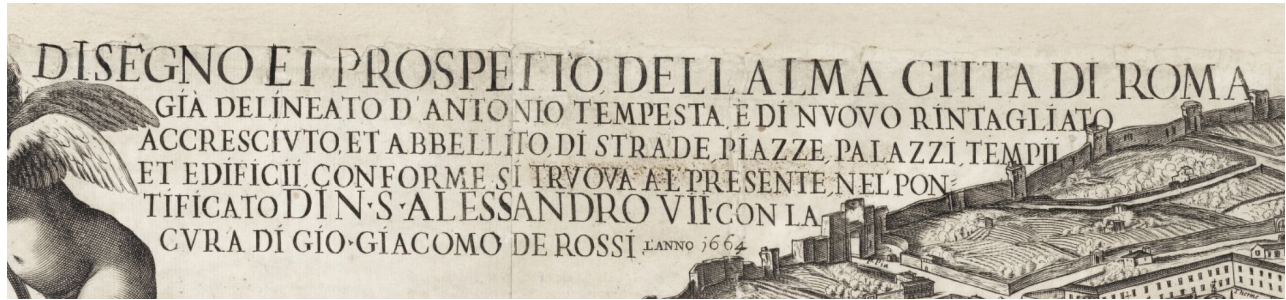 DISEGNO ET PROSPETTO DELL ALMA CITTA DI ROMA
GIA DELINEATO D'ANTONIO TEMPESTA, E DI NVOVO RINTAGLIATO
ACCRESCIVTO, ET ABBELLITO, DI STRADE, PIAZZE, PALAZZI, TEMPII
ET EDIFICII, CONFORME SI TRVOVA AL PRESENTE, NEL PON-
TIFICATO DI N·S·ALESSANDRO VII·CON LA
CVRA DI GIO·GIACOMO DE ROSSI L'ANNO 1664